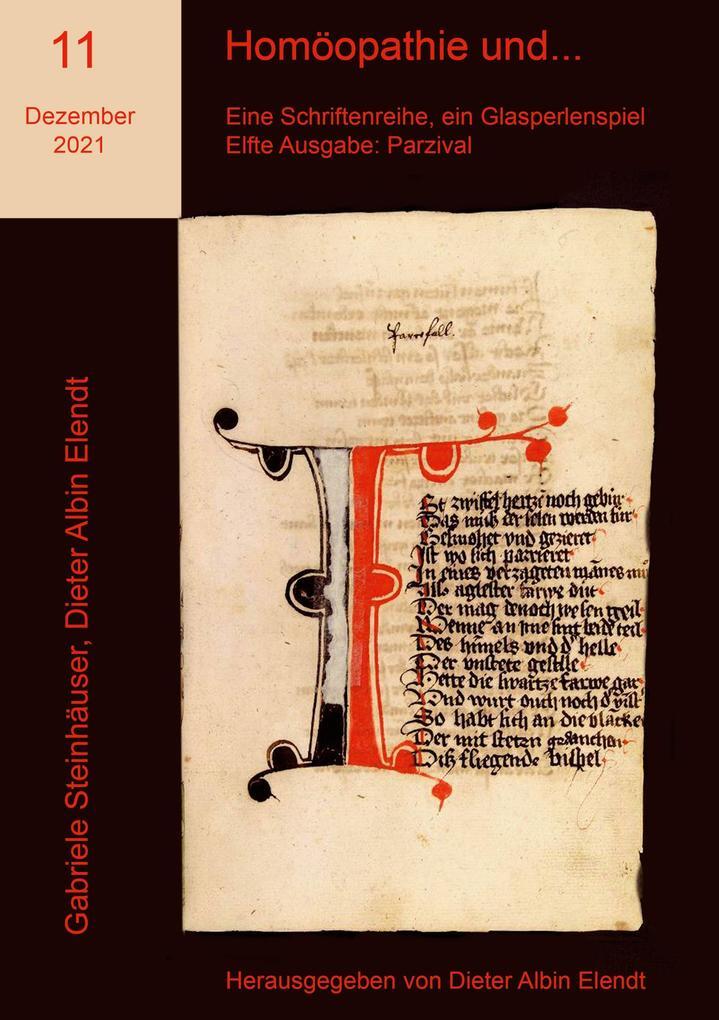 11
Dezember
2021
Homöopathie und...
Eine Schriftenreihe, ein Glasperlenspiel
Elfte Ausgabe: Parzival
Gabriele Steinhäuser, Dieter Albin Elendt
Parcifall.
St zwiffel hertzē noch gebur
Das muſs der ſelen werden ſur
Geſmohet vnd gezieret
Iſt wo ſich parrieret
In eines verzageten mānes
Alſo agleſter farwe dut
Der mag denoch weſen geil
Wenne an yme ſint beide teil
Des himels vnd d' helle
Der vnſtete geſelle
Hette die ſwartze farwe gar
Vnd wurt ouch noch d'
So habt ſich an die blancke
Der mit ſteten gedancken
Diſs fliegende biſpel
Herausgegeben von Dieter Albin Elendt